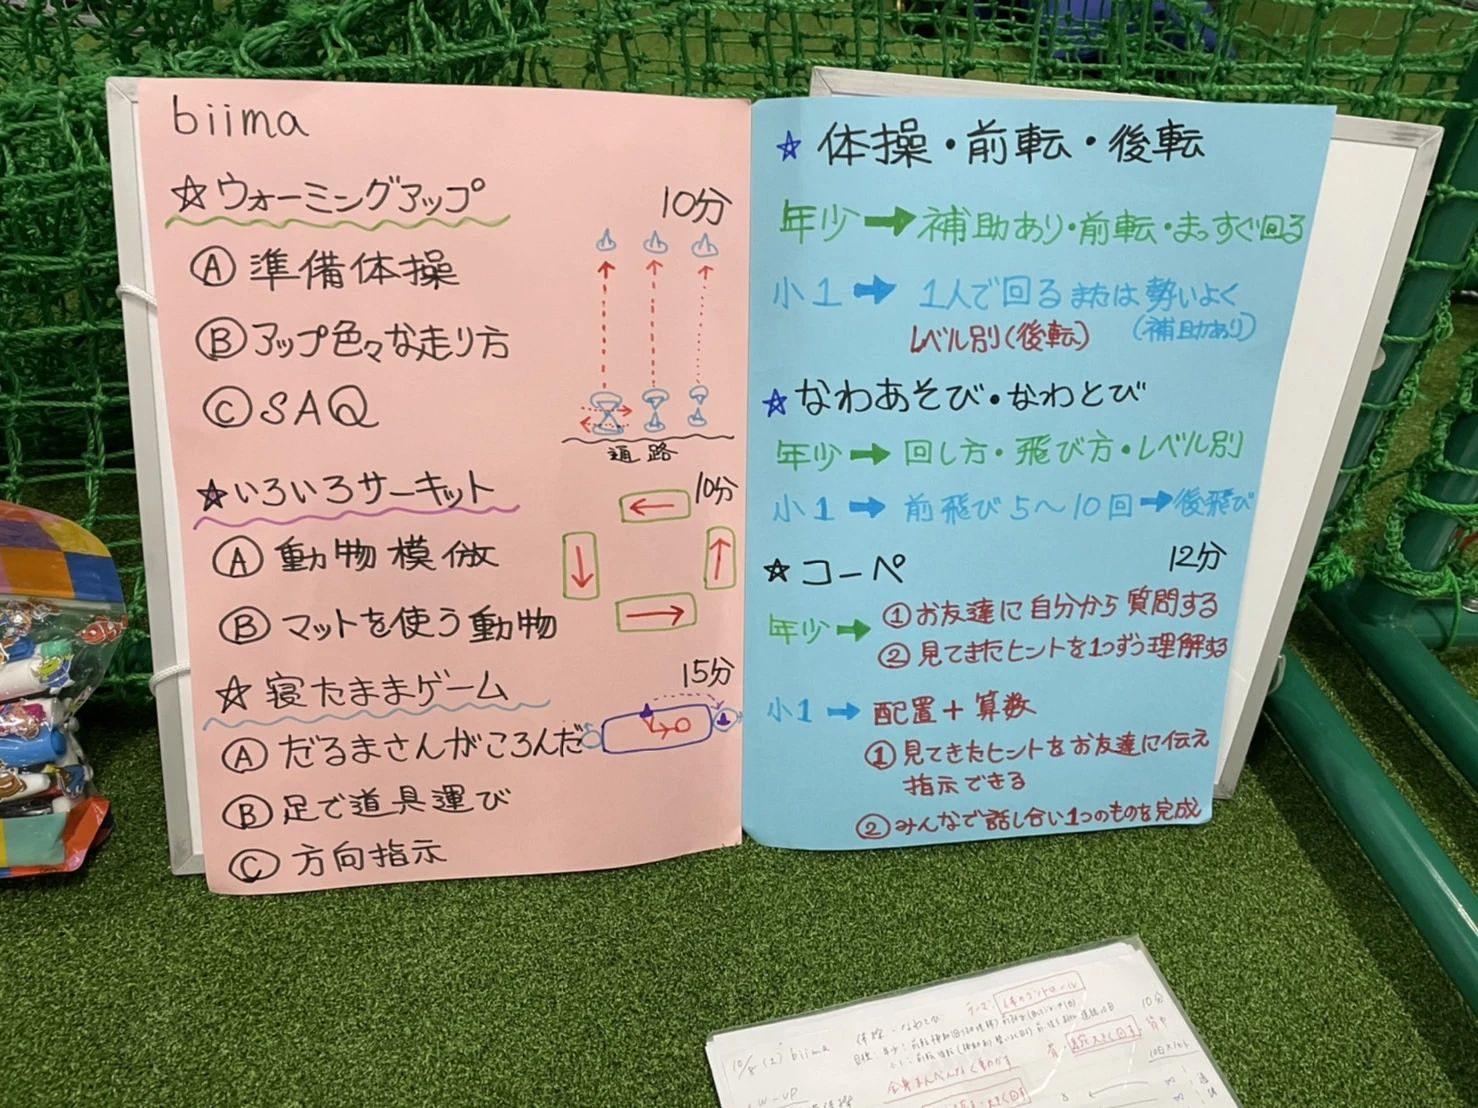 biima
☆ウォーミングアップ 10分
Ⓐ準備体操
Ⓑアップ色々な走り方
ⒸSAQ
通路
☆いろいろサーキット 10分
Ⓐ動物模倣
Ⓑマットを使う動物
☆寝たままゲーム 15分
Ⓐだるまさんがころんだ
Ⓑ足で道具運び
Ⓒ方向指示
☆体操・前転・後転
年少➡補助あり・前転・まっすぐ回る
小1➡1人で回るまたは勢いよく
レベル別(後転) (補助あり)
☆なわあそび・なわとび
年少➡回し方・飛び方・レベル別
小1➡前飛び5〜10回➡後飛び
☆コーペ 12分
年少➡①お友達に自分から質問する
②見てきたヒントを1つずつ理解する
小1➡配置+算数
①見てきたヒントをお友達に伝え
指示できる
②みんなで話し合い1つのものを完成
10/8(土) biima
W-UP
10分